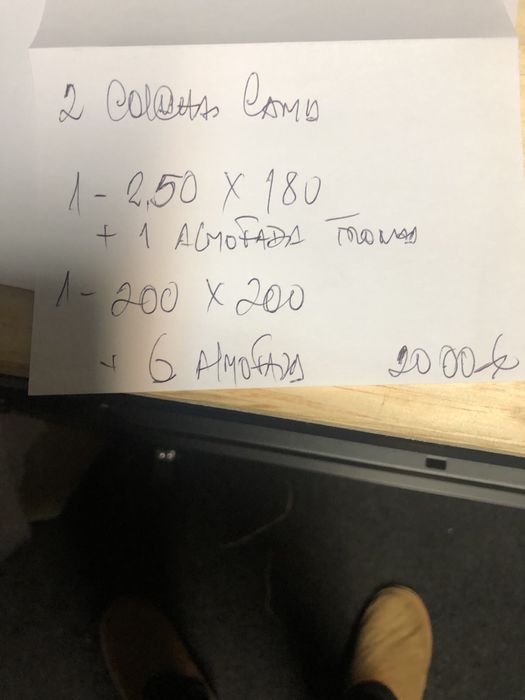 2 COLCHAS CAMA
1 - 2,50 X 180
+ 1 ALMOFADA
1 - 200 X 200
+ 6 ALMOFADA 2000